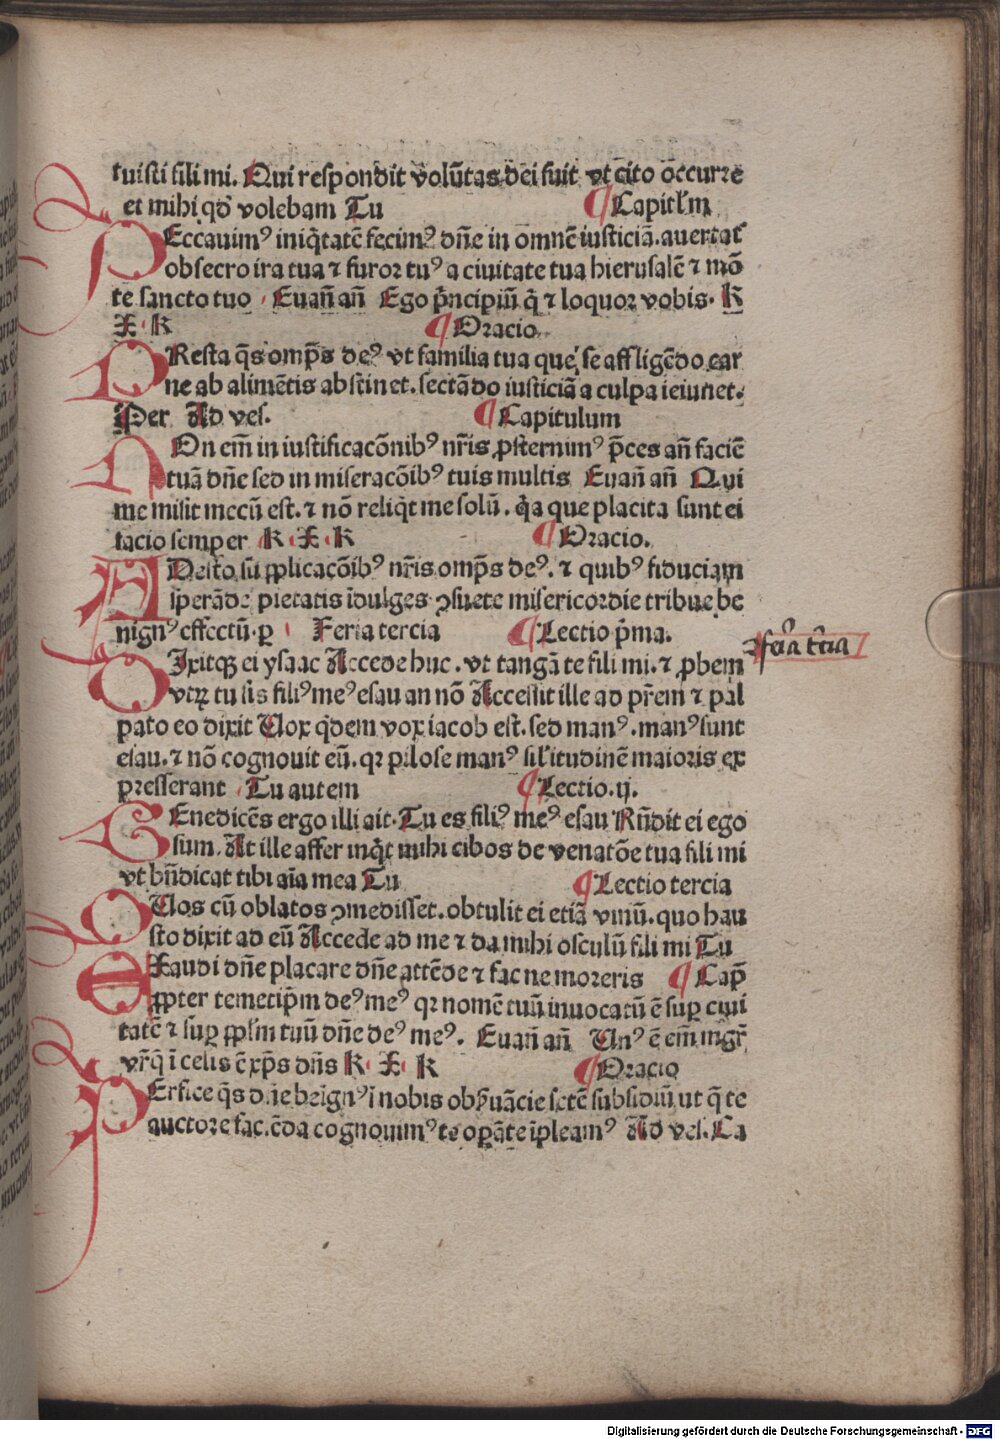 tuisti fili mi. Qui respondit volūtas dei fuit vt cito occurre
et mihi qđ volebam Tu ¶ Capitl'm
PEccauimꝰ iniq̇tatē fecimꝰ dn̄e in omnē iusticiā. auertat̄
obsecro ira tua ⁊ furor tuꝰ a ciuitate tua hierusalē ⁊ mō
te sancto tuo Euan̄ an̄ Ego p̄ncipiū q̇ ⁊ loquor vobis. K
X K ¶ Oracio
PResta q̄s omp̄s deꝰ vt familia tua que se affligēdo car
ne ab alimētis abstinet. sectādo iusticiā a culpa ieiunet.
Per Ad ves. ¶ Capitulum
NOn em̄ in iustificacōnibꝰ nr̄is ꝓsternimꝰ p̄ces an̄ faciē
tuā dn̄e sed in miseracōibꝰ tuis multis Euan̄ an̄ Qui
me misit mecū est. ⁊ nō reliq̇t me solū. q̇a que placita sunt ei
facio semper K X K ¶ Oracio.
ADesto sū pplicacōibꝰ nr̄is omp̄s deꝰ. ⁊ quibꝰ fiduciam
sperāde pietatis īdulges ꝯsuete misericordie tribue be
nignꝰ effectū. ꝑ Feria tercia ¶ Lectio p̄ma.
feria tercia
DIxitqꝫ ei ysaac Accede huc. vt tangā te fili mi. ⁊ ꝓbem
vtꝝ tu sis filiꝰ meꝰ esau an nō Accessit ille ad pr̄em ⁊ pal
pato eo dixit Vox q̇dem vox iacob est. sed manꝰ. manꝰ sunt
esau. ⁊ nō cognouit eū. qꝛ pilose manꝰ sil'itudinē maioris ex
presserant Tu autem ¶ Lectio. ij.
BEnedicēs ergo illi ait. Tu es filiꝰ meꝰ esau Rn̄dit ei ego
sum. At ille affer inq̇t mihi cibos de venatōe tua fili mi
vt bn̄dicat tibi aīa mea Tu ¶ Lectio tercia
QVos cū oblatos ꝯmedisset. obtulit ei etiā vinū. quo hau
sto dixit ad eū Accede ad me ⁊ da mihi osculū fili mi Tu
EXaudi dn̄e placare dn̄e attēde ⁊ fac ne moreris ¶ Cap̄
ꝓpter temetip̄m deꝰ meꝰ qꝛ nomē tuū inuocatū ē suꝑ ciui
tatē ⁊ suꝑ pp̄lm tuū dn̄e deꝰ meꝰ. Euan̄ an̄ Vnꝰ ē em̄ mgr̄
vr̄ q̇ ī celis ē xp̄s dn̄s K X K ¶ Oracio
PErfice q̄s dn̄e beīgnꝰ ī nobis obs̄uācie sctē subsidiū ut q̄ te
auctore faciēda cognouimꝰ te oꝑāte īpleamꝰ Ad vel. Ca
Digitalisierung gefördert durch die Deutsche Forschungsgemeinschaft - DFG